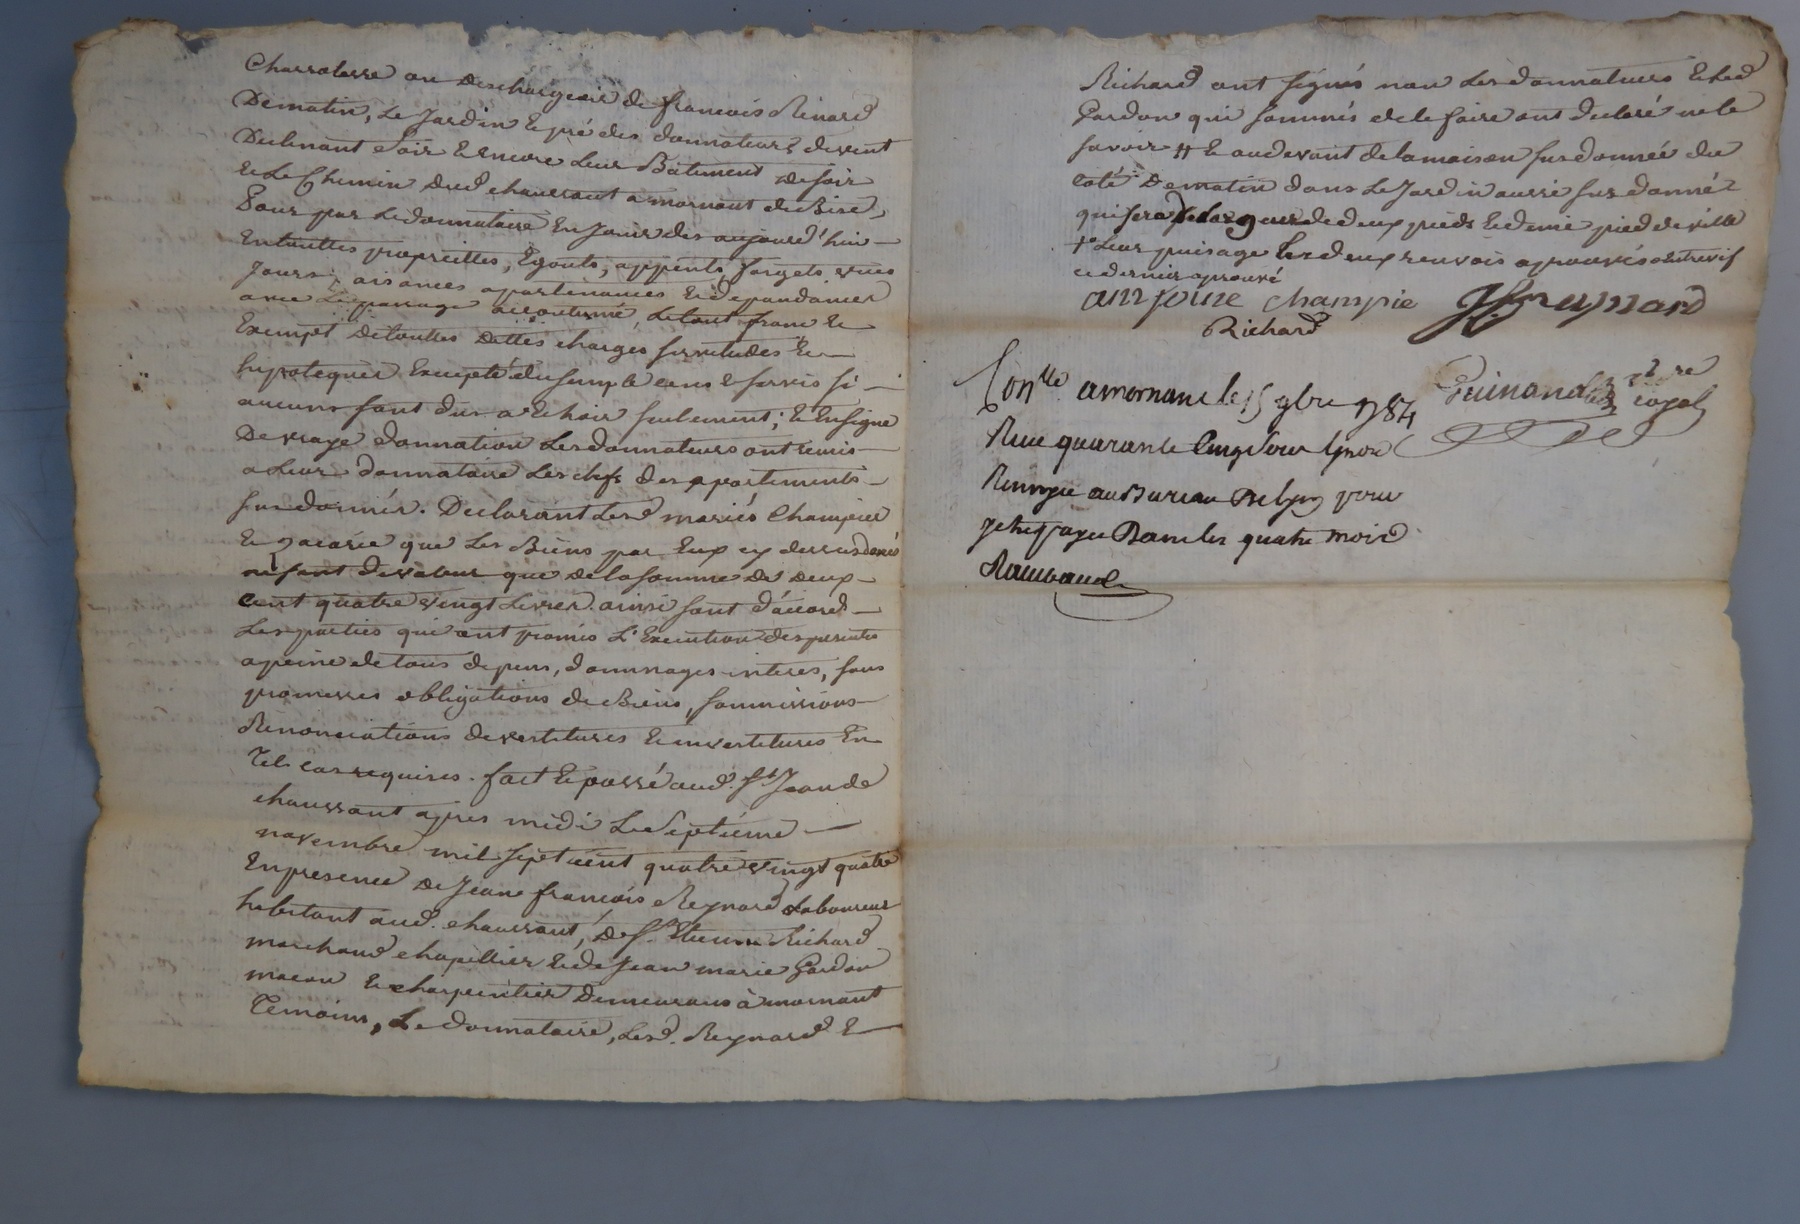 Charroterre ou Deschargeoir de francois Rinard
De matin, Le Jardin & pré des donnateurs devent
Declinant Soir & Encore Leur Bâtiment de soir
& Le Chemin Dud chaussant a mornant de Bise,
Pour par Le donnataire En Jouir des aujourd'hui
En touttes propriettes, Egouts, appents, forgets vues
Jours, aisances apartenances & dependances
avec Le passage accoutumé, Le tout franc &
Exempt De touttes Dettes charges servitudes &
hipoteques Excepté du simple cens & servis si
aucuns sont dus a Echoir seulement; & En signe
De vraye donnation Les donnateurs ont remis
a Leur donnataire Les clefs des apartements
sus donnés. Declarant Les d mariés Champier
& que Les Biens par Eux cy dessus donnés
ne sont de valeur que de la somme de deux
cent quatre vingt Livres. ainsi sont d'accord
Les parties qui ont promis L'Execution des presentes
a peine de tous depens, dommages interes, sous
promesses obligations de Biens, soumissions
Renonciations devestitures & investitures En
Tel cas requises. fait & passé aud. St Jean de
chaussant apres midi Le Septième
novembre mil sept cent quatre vingt quatre
En presence De Jean francois Reynard Laboureur
habitant aud. chaussant, De Sr. Etienne Richard
marchand chapellier & de Jean marie Gardon
macon & charpentier Demeurans à mornant
Temoins, Le donnataire, Les d. Reynard &
Richard ont signés non Les donnateurs & Led
Gardon qui sommés de le faire ont declaré ne le
savoir # & au devant de la maison sus donnée du
coté De matin dans Le Jardin aussi sus donné
qui sera de Largeur de deux pieds & demi pied de ville
+ Leur puisage Les deux renvois aprouvés & Entrevif
ce dernier aprouvé
champie J f reynard
Richard
Con.lle a mornant le 15 9bre 1784
Reçu quarante cinq sous
Renvoyé au Bureau de Lyon pour
y etre payé Dans les quatre mois
royal